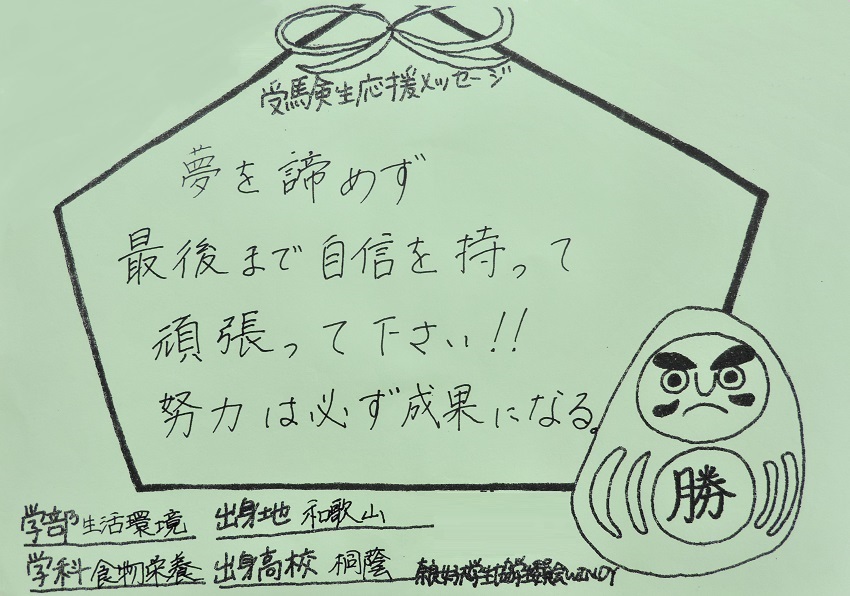 受験生応援メッセージ
夢を諦めず
最後まで自信を持って
頑張って下さい!!
努力は必ず成果になる。
勝
学部 生活環境 出身地 和歌山
学科 食物栄養 出身高校 桐蔭